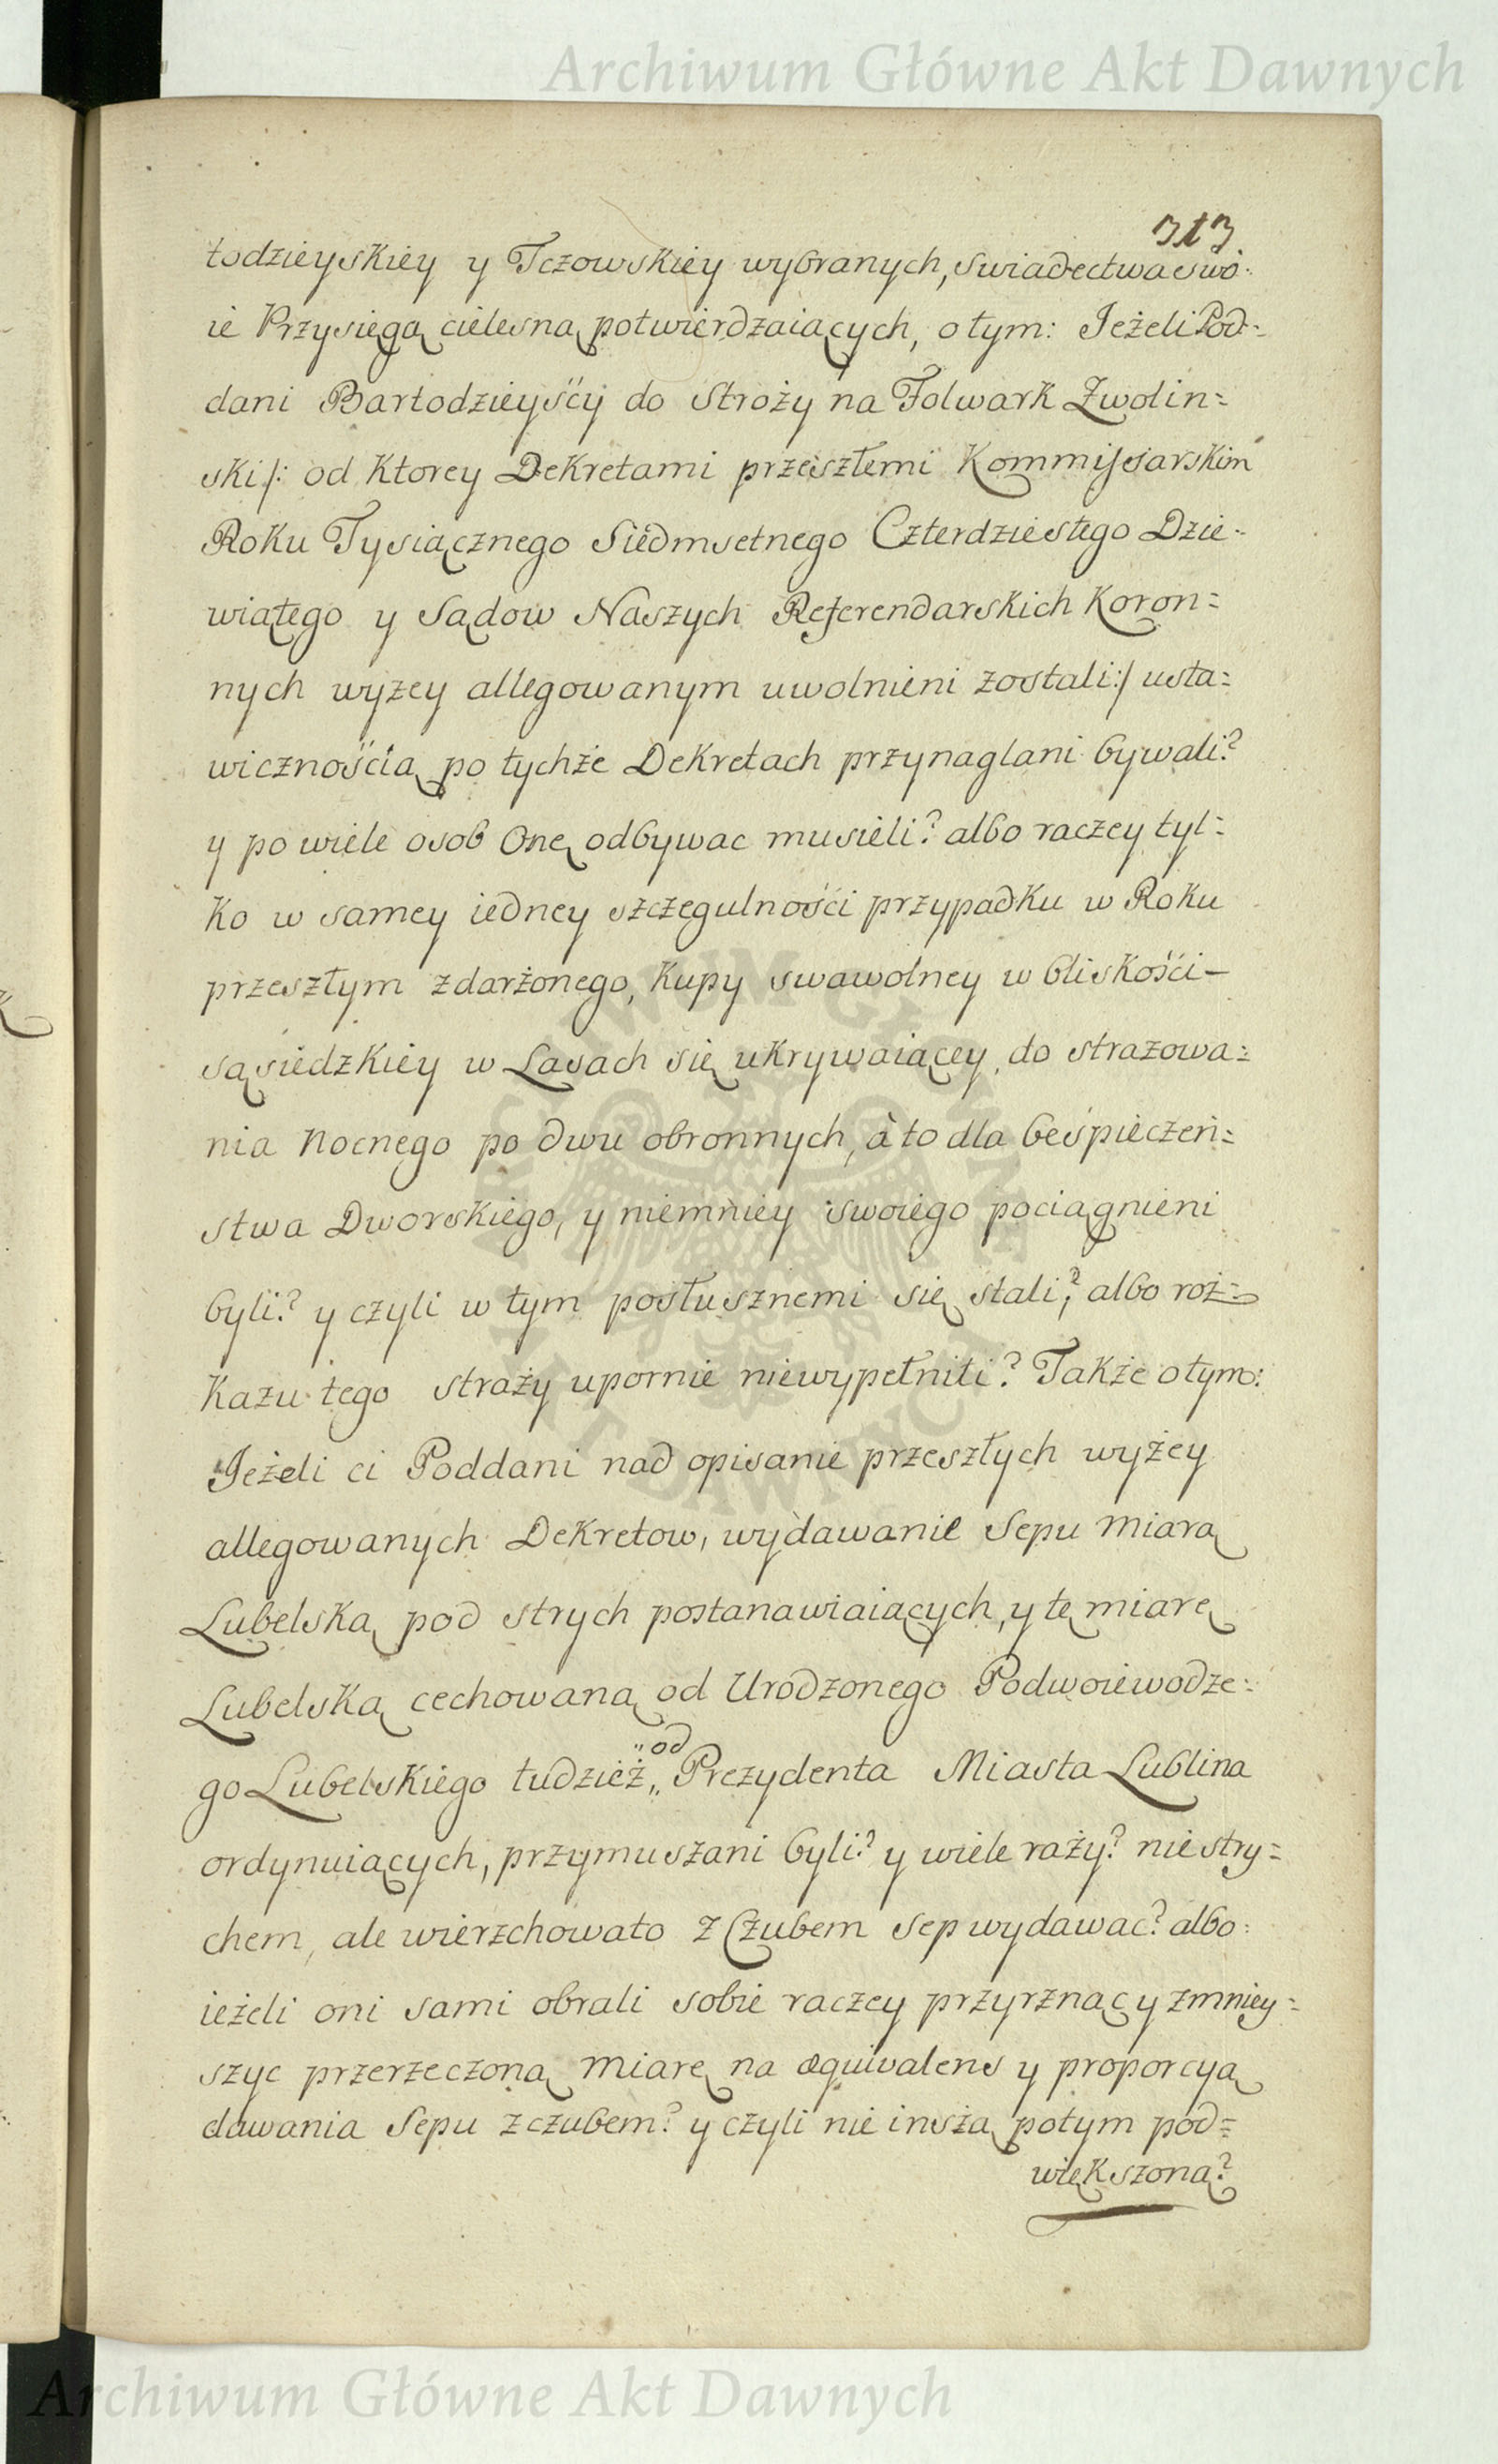 Archiwum Główne Akt Dawnych
313.
łodzieyskiey y Tczowskiey wybranych, swiadectwa swo:
ie Przysięgą cielesną potwierdzaiących, o tym: Jeżeli Pod=
dani Bartodzieyscy do Stroży na Folwark Zwolin=
ski /: od Ktorey Dekretami przeszłemi Kommissarskim
Roku Tysiącznego Siedmsetnego Czterdziestego Dzie=
wiątego y Sądow Naszych Referendarskich Koron=
nych wyzey allegowanym uwolnieni zostali :/ usta=
wicznością po tychże Dekretach przynaglani bywali?
y po wiele osob Onę odbywac musieli? albo raczey tyl=
ko w samey iedney szczegulności przypadku w Roku
przeszłym zdarżonego, Kupy swawolney w bliskości
sąsiedzkiey w Lasach się ukrywaiącey, do strazowa=
nia Nocnego po dwu obronnych, à to dla bespieczeń=
stwa Dworskiego, y niemniey swoiego pociągnieni
byli? y czyli w tym posłusznemi się stali? albo roz=
kazu tego straży upornie niewypełnili? Także o tym:
Jeżeli ci Poddani nad opisanie przeszłych wyżey
allegowanych Dekretow, wydawanie Sepu Miarą
Lubelską pod strych postanawiaiących, y tę miarę
Lubelską cechowaną od Urodzonego Podwoiewodze=
go Lubelskiego tudzież „od„ Prezydenta Miasta Lublina
ordynuiących, przymuszani byli? y wiele raży? nie stry=
chem, ale wierzchowato z Czubem Sep wydawać? albo
ieżeli oni sami obrali sobie raczey przyrznąc y zmniey=
szyc przerzeczoną Miarę na æquivalens y proporcyą
dawania Sepu z czubem? y czyli nie inszą potym pod=
większoną?
Archiwum Główne Akt Dawnych